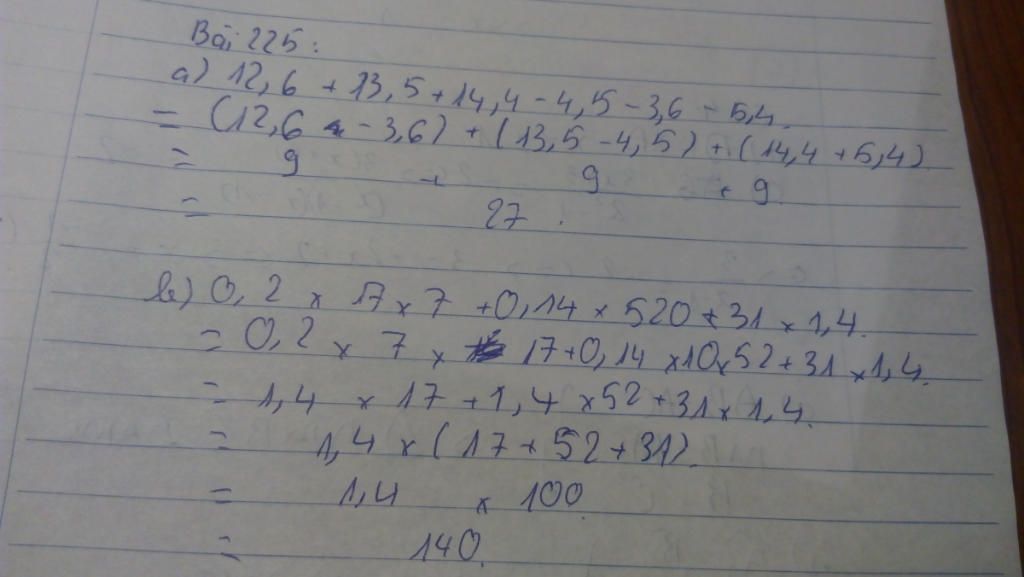 Bài 225:
a) 12,6 + 13,5 + 14,4 - 4,5 - 3,6 - 5,4.
= (12,6 - 3,6) + (13,5 - 4,5) + (14,4 + 5,4)
= 9 + 9 + 9.
= 27.
b) 0,2 × 17 × 7 + 0,14 × 520 + 31 × 1,4.
= 0,2 × 7 × 17 + 0,14 × 10 × 52 + 31 × 1,4.
= 1,4 × 17 + 1,4 × 52 + 31 × 1,4.
= 1,4 × (17 + 52 + 31).
= 1,4 × 100
= 140.